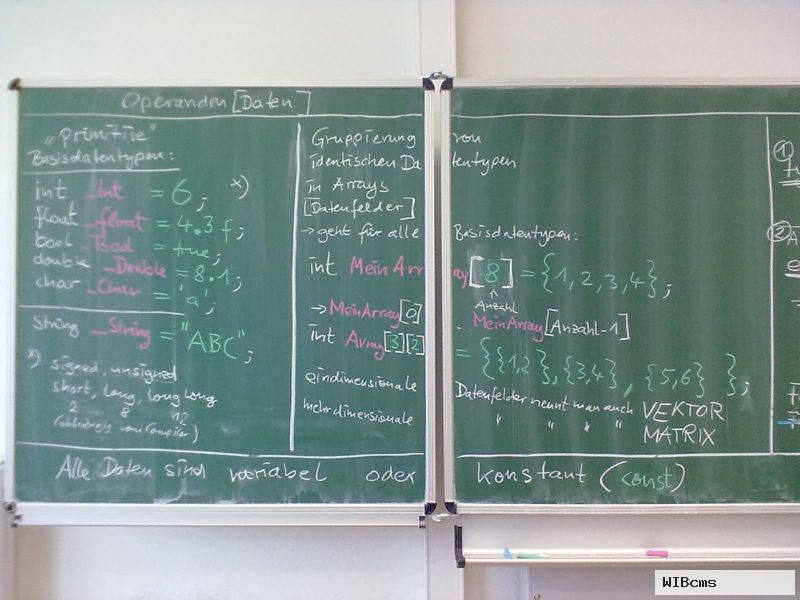 Operanden [Daten]
„primitive"
Basisdatentypen:
int _Int = 6; *)
float _float = 4.3f;
bool _Bool = true;
double _Double = 8.1;
char _Char = 'a';
string _String = "ABC";
*) signed, unsigned
short, long, long long
2 8 12
(abhängig vom Compiler)
Gruppierung von
identischen Datentypen
in Arrays
[Datenfelder]
→ geht für alle Basisdatentypen:
int MeinArray[8] = {1,2,3,4};
Anzahl
→ MeinArray[0] .. MeinArray[Anzahl-1]
int Array[3][2] = {{1,2},{3,4},{5,6}};
eindimensionale Datenfelder nennt man auch VEKTOR
mehrdimensionale " " " " MATRIX
1
2
Alle Daten sind variabel oder konstant (const)
WIBcms